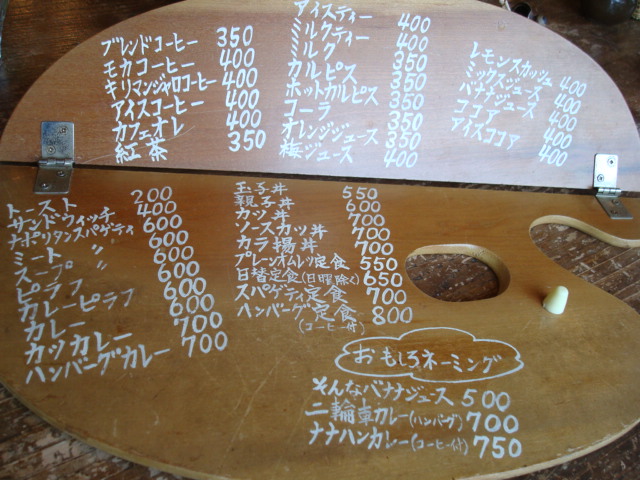 ブレンドコーヒー 350
モカコーヒー 400
キリマンジャロコーヒー 400
アイスコーヒー 400
カフェオレ 400
紅茶 350
アイスティー 400
ミルクティー 400
ミルク 350
カルピス 350
ホットカルピス 400
コーラ 350
オレンジジュース 350
梅ジュース 400
レモンスカッシュ 400
ミックスジュース 400
バナナジュース 400
ココア 400
アイスココア 400
トースト 200
サンドウィッチ 400
ナポリタンスパゲティ 600
ミート 〃 600
スープ 〃 600
ピラフ 600
カレーピラフ 600
カレー 600
カツカレー 700
ハンバーグカレー 700
玉子丼 550
親子丼 600
カツ丼 700
ソースカツ丼 700
カラ揚丼 700
プレーンオムレツ定食 550
日替定食(日曜除く) 650
スパゲティ定食 700
ハンバーグ定食 800
(コーヒー付)
おもしろネーミング
そんなバナナジュース 500
二輪車カレー(ハンバーグ) 700
ナナハンカレー(コーヒー付) 750